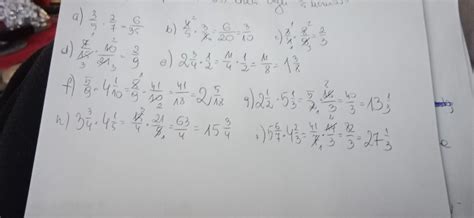 a) 3/5 · 2/7 = 6/35 b) 2/5 · 3/4 = 6/20 = 3/10
d) 7/15 · 10/21 = 2/9 e) 2 3/4 · 1/2 = 11/4 · 1/2 = 11/8 = 1 3/8
f) 5/9 · 4 1/10 = 5/9 · 41/10 = 41/18 = 2 5/18 g) 2 1/2 · 5 1/3 = 5/2 · 16/3 = 40/3 = 13 1/3
h) 3 3/4 · 4 1/5 = 15/4 · 21/5 = 63/4 = 15 3/4 i) 5 6/7 · 4 2/3 = 41/7 · 14/3 = 82/3 = 27 1/3